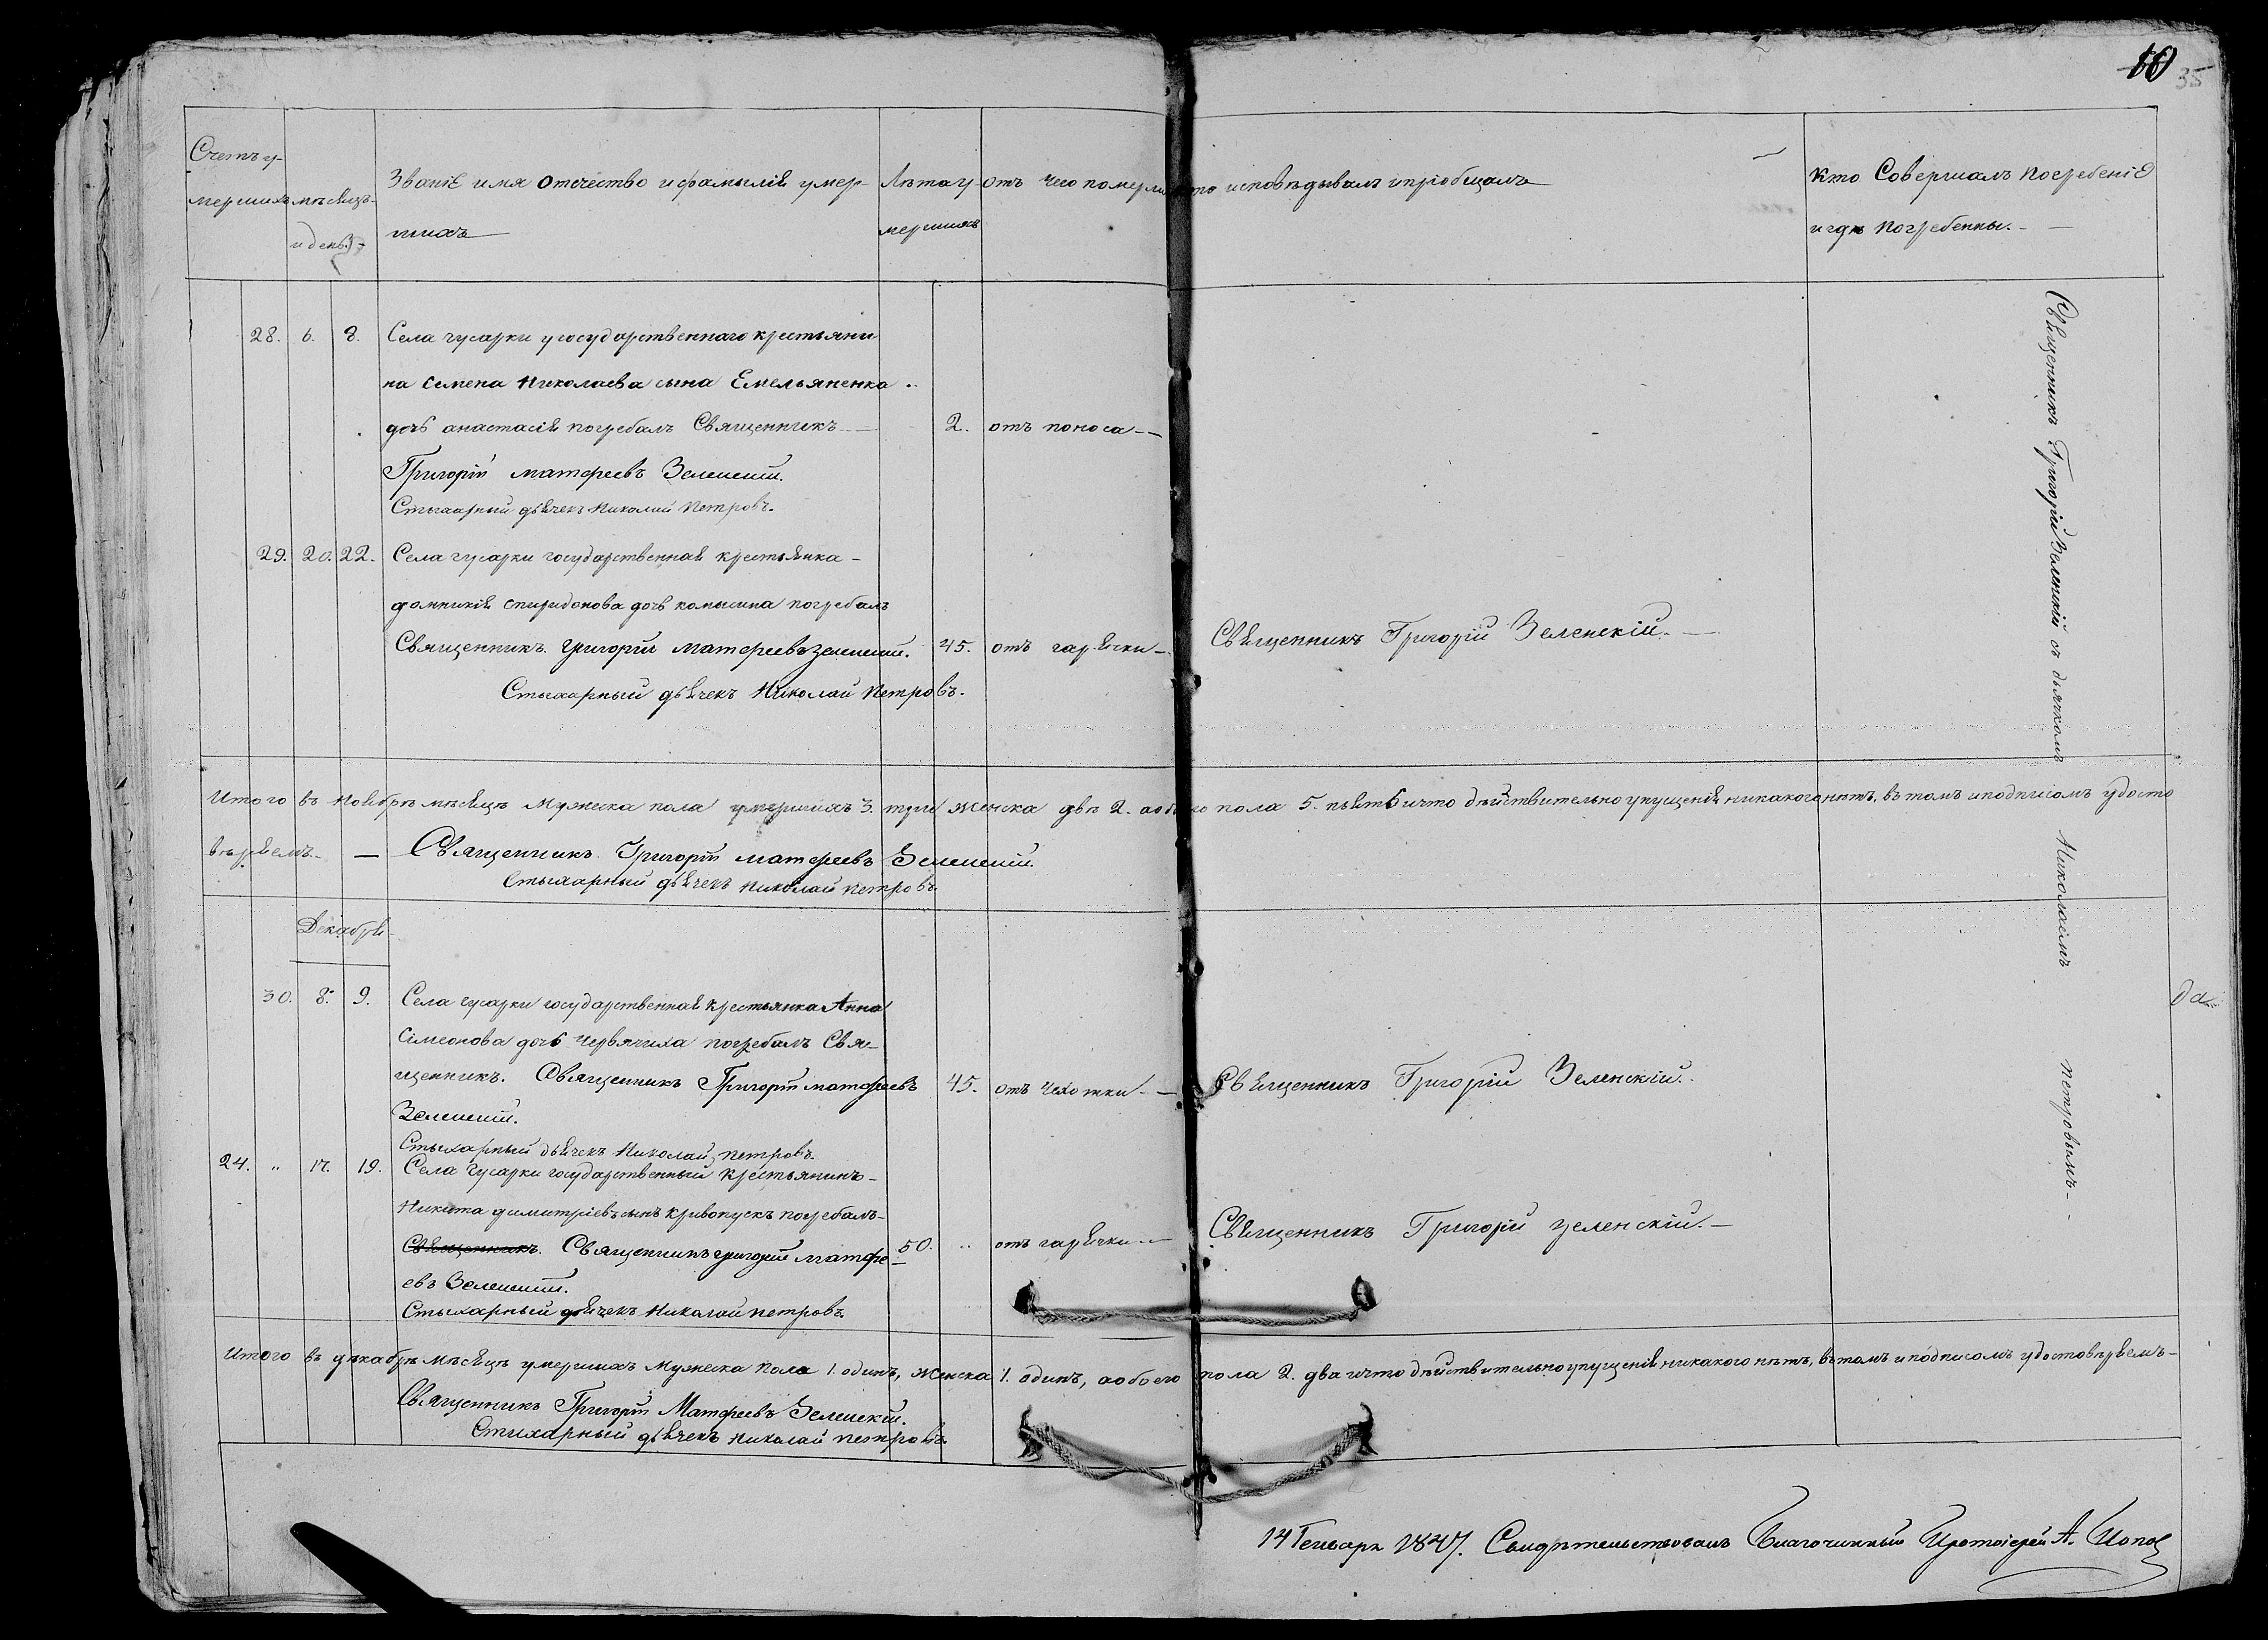 10
35
Счетъ у-
мершихъ
мѣсяцъ
и день
Званіе имя отечество и фамылія умер-
шихъ
Лѣта у-
мершихъ
отъ чего померли
кто исповѣдывалъ и пріобщалъ
Кто Совершалъ Погребеніе
и гдѣ Погребенны.
28. 6. 8. Села гусарки у государственнаго крестьяни
на семена Николаева сына Емельяненка
дочь анастасія погребалъ Священникъ 2. отъ поноса
Григорій матфеевъ Зеленскій.
Стыхарный дьячекъ Николай Петровъ.
29. 20. 22. Села гусарки государственная крестьянка
домникія спиридонова дочь комысина погребалъ
Священникъ григорій матфеевъ зеленскій. 45. отъ гарячки Священникъ Григорій Зеленскій.
Стыхарный дьячекъ Николай Петровъ.
Итого въ Ноябрѣ мѣсяцѣ Мужеска пола умершихъ 3. три Женска двѣ 2. а обоего пола 5. пять и что дѣйствительно упущенія никакого нѣтъ, въ томъ и подписомъ удосто
вѣряемъ. Священникъ Григорій матфеевъ Зеленскій.
Стыхарный дьячекъ николай петровъ
Декабря
30. 8. 9. Села гусарки государственная крестьянка Анна
Сімеонова дочь Червячиха погребалъ Свя-
щенникъ. Священникъ Григорій матфеевъ 45. отъ чехотки Священникъ Григорій Зеленскій.
Зеленскій.
Стыхарный дьячекъ Николай петровъ.
24. " 17. 19. Села Гусарки государственный крестьянинъ
Никита димитріевъ сынъ кривопускъ погребалъ
Священникъ. Священникъ григорій матфе- 50. " отъ гарячки Священникъ Григорій зеленскій.
евъ Зеленскій.
Стыхарный дьячекъ Николай петровъ.
Итого въ декабрѣ мѣсяцѣ умершихъ Мужеска Пола 1. одинъ, Женска 1. одинъ, а обоего пола 2. два и что дѣйствительно упущенія никакого нѣтъ, въ томъ и подписомъ удостовѣряемъ
Священникъ Григорій Матфеевъ Зеленскій.
Стихарный дьячекъ николай петровъ.
Священникъ Григорій Зеленскій съ дьячкомъ Николаемъ петровымъ
да
14 Генваря 1847. Свидѣтельствовалъ Благочинный Протоіерей А. Попов